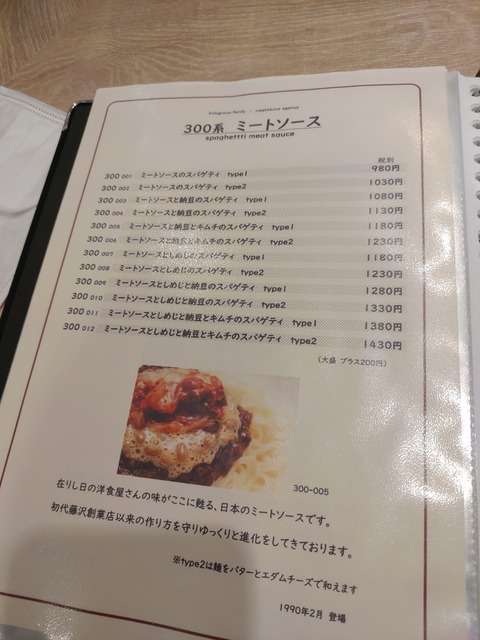 bolognese family / meatsauce spence
300系 ミートソース
spaghettti meat sauce
税別
300 001 ミートソースのスパゲティ type1 980円
300 002 ミートソースのスパゲティ type2 1030円
300 003 ミートソースと納豆のスパゲティ type1 1080円
300 004 ミートソースと納豆のスパゲティ type2 1130円
300 005 ミートソースと納豆とキムチのスパゲティ type1 1180円
300 006 ミートソースと納豆とキムチのスパゲティ type2 1230円
300 007 ミートソースとしめじのスパゲティ type1 1180円
300 008 ミートソースとしめじのスパゲティ type2 1230円
300 009 ミートソースとしめじと納豆のスパゲティ type1 1280円
300 010 ミートソースとしめじと納豆のスパゲティ type2 1330円
300 011 ミートソースとしめじと納豆とキムチのスパゲティ type1 1380円
300 012 ミートソースとしめじと納豆とキムチのスパゲティ type2 1430円
(大盛 プラス200円)
300-005
在りし日の洋食屋さんの味がここに甦る、日本のミートソースです。
初代藤沢創業店以来の作り方を守りゆっくりと進化をしてきております。
※type2は麺をバターとエダムチーズで和えます
1990年2月 登場